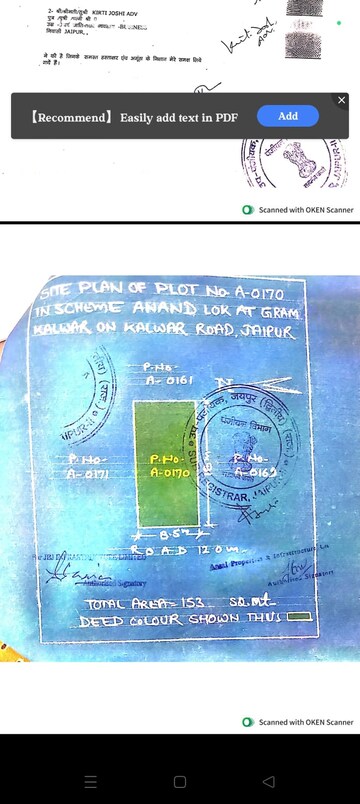 2- श्री/श्रीमती/सुश्री KIRTI JOSHI ADV
निवासी JAIPUR,
ने की है जिनके समस्त हस्ताक्षर एवं अंगूठा के निशान मेरे समक्ष लिये
गये हैं।
Kirti Joshi
Adv.
【Recommend】 Easily add text in PDF
Add
Scanned with OKEN Scanner
SITE PLAN OF PLOT No A-0170
IN SCHEME ANAND LOK AT GRAM
KALWAR ON KALWAR ROAD, JAIPUR
P.No-
A-0161
N
P.No-
A-0171
P.No-
A-0170
P.No-
A-0169
जयपुर (द्वितीय)
पंजीयन विभाग
SUB REGISTRAR, JAIPUR
8.5m
ROAD 12.0m
LIMITED
Authorised Signatory
Ansal Properties & Infrastructure Ltd
Authorised Signatory
TOTAL AREA = 153 SQ.mt.
DEED COLOUR SHOWN THUS
Scanned with OKEN Scanner